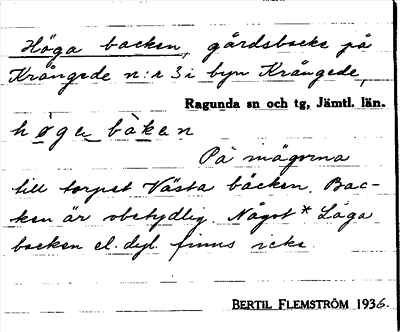 Höga backen, gårdsbacke på
Krångede n:r 3 i byn Krångede,
Ragunda sn och tg, Jämtl. län.
høga bàken
På ägorna
till torpet Västa bäcken. Bac-
ken är obetydlig. Något * Låga
backen el. dyl. finns icke.
BERTIL FLEMSTRÖM 1936.